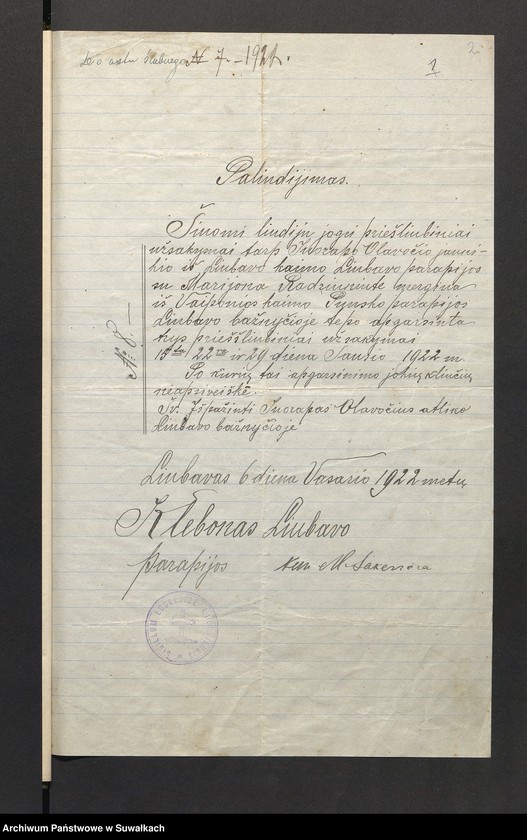 Do aktu ślubnego № 7. - 192
2
1
Paliudijimas.
Šiuomi liudiju jogei priešliubiniai
užsakymai tarp Juozapo Olavočio jauni-
kio iš Liubavo kaimo Liubavo parapijos
su Marijona merg
iš kaimo Punsko parapijos
Liubavo bažnyčioje tapo apgarsinta
trys priešliubiniai užsakymai
15 22 ir 29 diena Sausio 1922 m
Po kurių tai apgarsinimo jokių kliučių
neapsireiškė.
Šv. Išpažintį Juozapas Olavočius atliko
Liubavo bažnyčioje
№ 8. —
Liubavas 6 diena Vasario 1922 metų
Klebonas Liubavo
parapijos kun M.
Archiwum Państwowe w Suwałkach